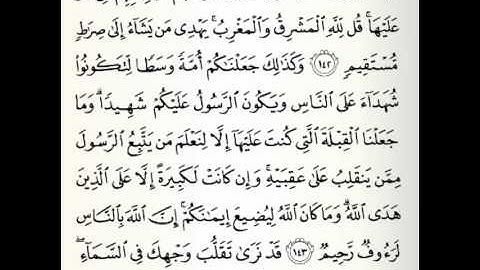 عَلَيۡهَاۚ قُل لِّلَّهِ ٱلۡمَشۡرِقُ وَٱلۡمَغۡرِبُۚ يَهۡدِي مَن يَشَآءُ إِلَىٰ صِرَٰطٖ
مُّسۡتَقِيمٖ ١٤٢ وَكَذَٰلِكَ جَعَلۡنَٰكُمۡ أُمَّةٗ وَسَطٗا لِّتَكُونُواْ
شُهَدَآءَ عَلَى ٱلنَّاسِ وَيَكُونَ ٱلرَّسُولُ عَلَيۡكُمۡ شَهِيدٗاۗ وَمَا
جَعَلۡنَا ٱلۡقِبۡلَةَ ٱلَّتِي كُنتَ عَلَيۡهَآ إِلَّا لِنَعۡلَمَ مَن يَتَّبِعُ ٱلرَّسُولَ
مِمَّن يَنقَلِبُ عَلَىٰ عَقِبَيۡهِۚ وَإِن كَانَتۡ لَكَبِيرَةً إِلَّا عَلَى ٱلَّذِينَ
هَدَى ٱللَّهُۗ وَمَا كَانَ ٱللَّهُ لِيُضِيعَ إِيمَٰنَكُمۡۚ إِنَّ ٱللَّهَ بِٱلنَّاسِ
لَرَءُوفٞ رَّحِيمٞ ١٤٣ قَدۡ نَرَىٰ تَقَلُّبَ وَجۡهِكَ فِي ٱلسَّمَآءِۖ